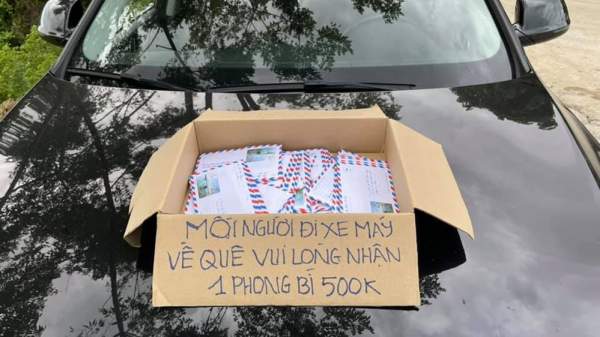 MỖI NGƯỜI ĐI XE MÁY
VỀ QUÊ VUI LÒNG NHẬN
1 PHONG BÌ 500K